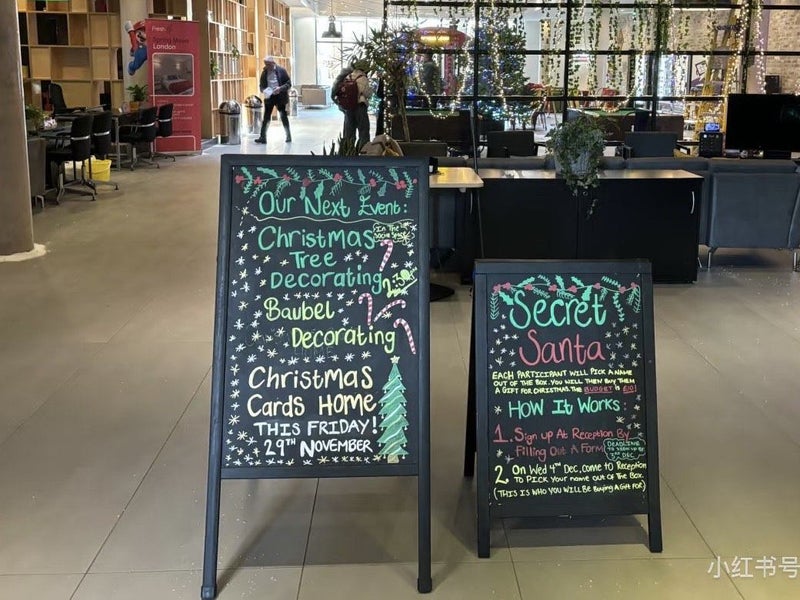 Fresh
London
Our Next Event:
In The
Social Space
Christmas
Tree
Decorating
2:30
Baubel
Decorating
Christmas
Cards Home
THIS FRIDAY!
29TH NOVEMBER
Secret
Santa
EACH PARTICIPANT WILL PICK A NAME
OUT OF THE BOX. YOU WILL THEN BUY THEM
A GIFT FOR CHRISTMAS. THE BUDGET IS £10!
HOW IT WORKS:
1. Sign up At Reception By
Filling Out A Form
DEADLINE
TO SIGN UP BY
DEC
2. On Wed 4TH Dec, come to Reception
TO PICK Your name out of The Box.
(THIS IS WHO YOU WILL BE Buying A Gift For)
小红书号